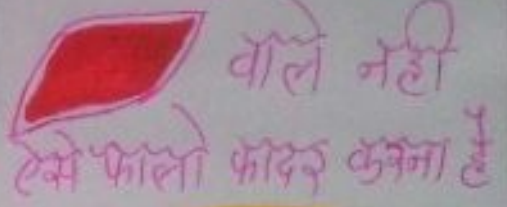 वाले नही
ऐसे फालो कादर करना है